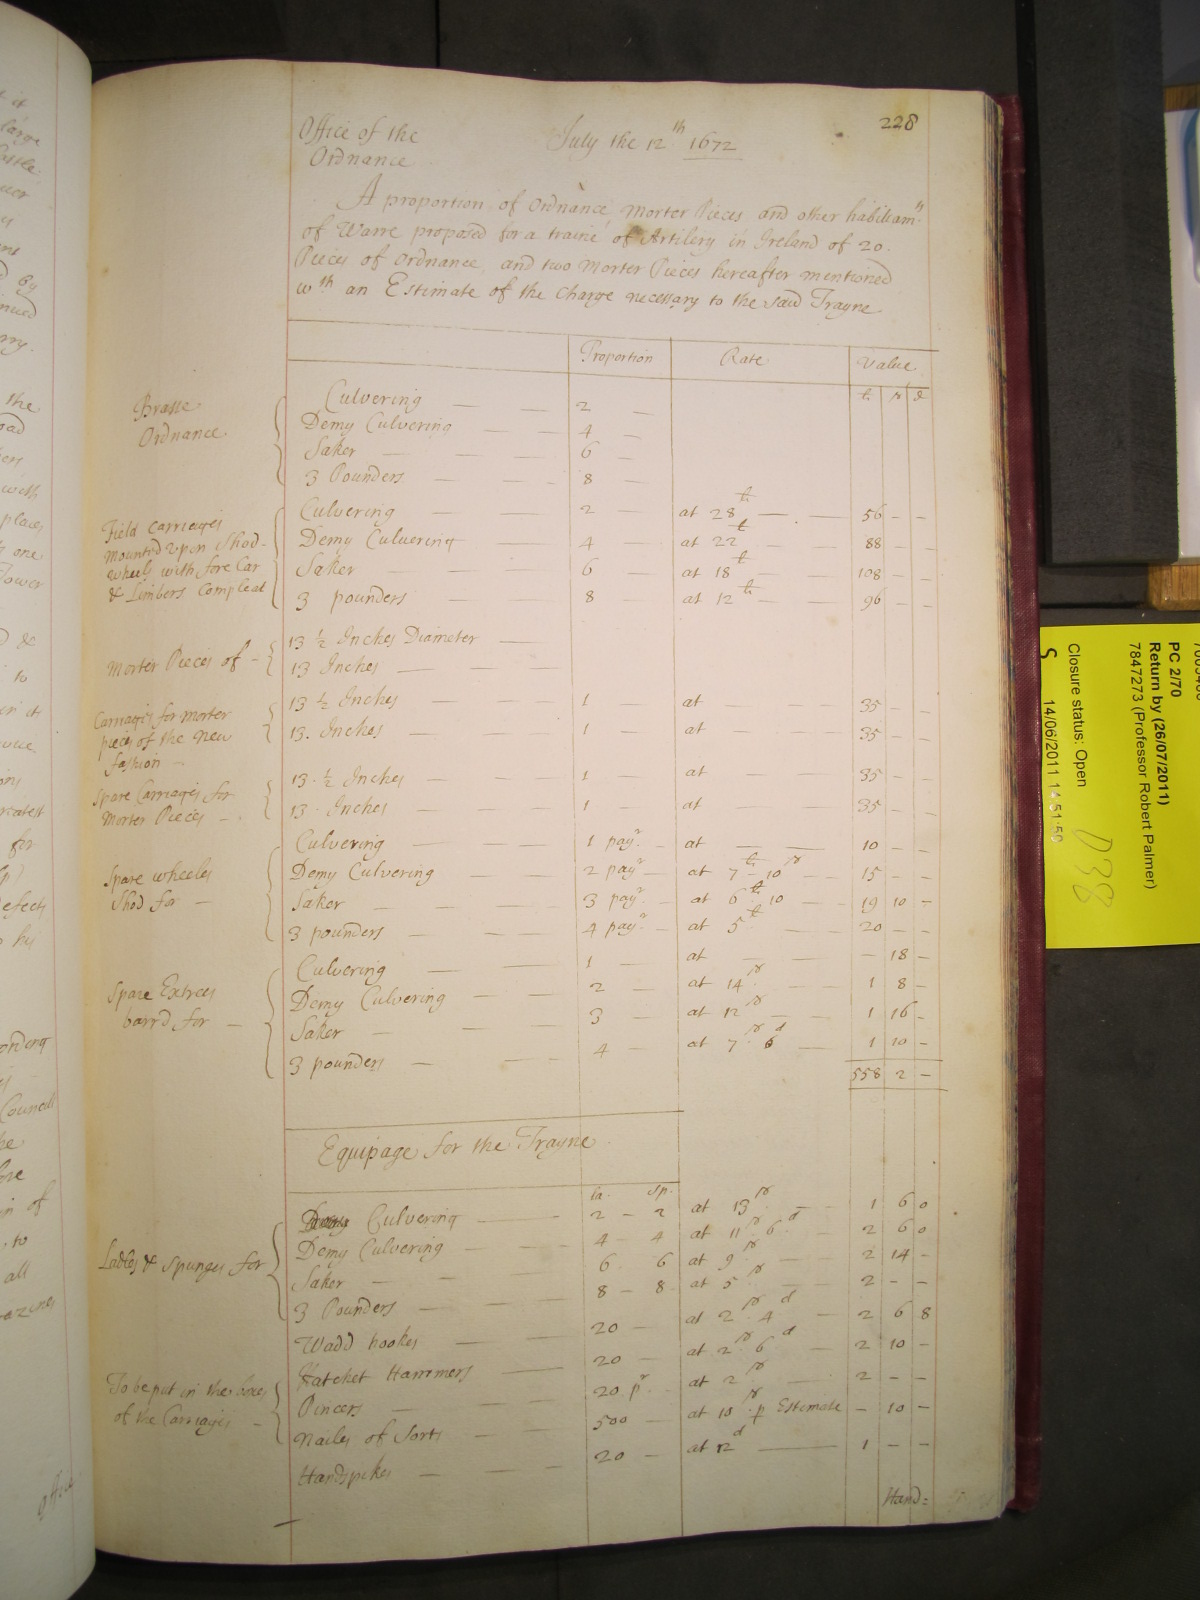 228
Office of the July the 12th 1672
Ordnance
A proportion of Ordnance Morter Pieces and other habilam.ts
of Warre proposed for a traine of Artilery in Ireland of 20.
Pieces of Ordnance, and two Morter Pieces hereafter mentioned
wth an Estimate of the Charge necessary to the said Trayne
Proportion Rate Value
li s d
Brasse Ordnance
Culvering — 2 —
Demy Culvering — 4 —
Saker — 6 —
3 Pounders — 8 —
Field Carriages
Mounted upon Shod-
wheels with fore Car
& Limbers Compleat
Culvering — 2 — at 28 li — 56 - -
Demy Culvering — 4 — at 22 li — 88 - -
Saker — 6 — at 18 li — 108 - -
3 pounders — 8 — at 12 li — 96 - -
Morter Pieces of -
13 ½ Inches Diameter —
13 Inches —
Carriages for morter
pieces of the new
fashion —
13 ½ Inches — 1 — at — 35 - -
13. Inches — 1 — at — 35 - -
Spare Carriages for
Morter Pieces —
13. ½ Inches — 1 — at — 35 - -
13. Inches — 1 — at — 35 - -
Spare wheeles
Shod for —
Culvering — 1 payr — at — 10 - -
Demy Culvering — 2 payr — at 7 li - 10 s 15 - -
Saker — 3 payr — at 6 li 10 — 19 10 -
3 pounders — 4 payr — at 5 li — 20 - -
Spare Extrees
barrd for —
Culvering — 1 — at — - 18 -
Demy Culvering — 2 — at 14 s — 1 8 -
Saker — 3 — at 12 s — 1 16 -
3 pounders — 4 — at 7 s 6 d — 1 10 -
558 2 -
Equipage for the Trayne
la. sp.
Ladles & Spunges for
Culvering — 2 - 2 at 13 s — 1 6 0
Demy Culvering — 4 - 4 at 11 s 6 d 2 6 0
Saker — 6 6 at 9 s — 2 14 -
3 Pounders — 8 - 8 at 5 s — 2 - -
Wadd hookes — 20 — at 2 s 4 d — 2 6 8
To be put in the boxes
of the Carriages —
Hatchet Hammers — 20 — at 2 s 6 d — 2 10 -
Pincers — 20 pr. at 2 s — 2 - -
Nailes of Sorts — 500 — at 10 s p Estimate - 10 -
Handspikes — 20 — at 12 d — 1 - -
Hand=
PC 2/70
Return by (26/07/2011)
7847273 (Professor Robert Palmer)
Closure status: Open
S 14/06/2011 14:51:50
D38